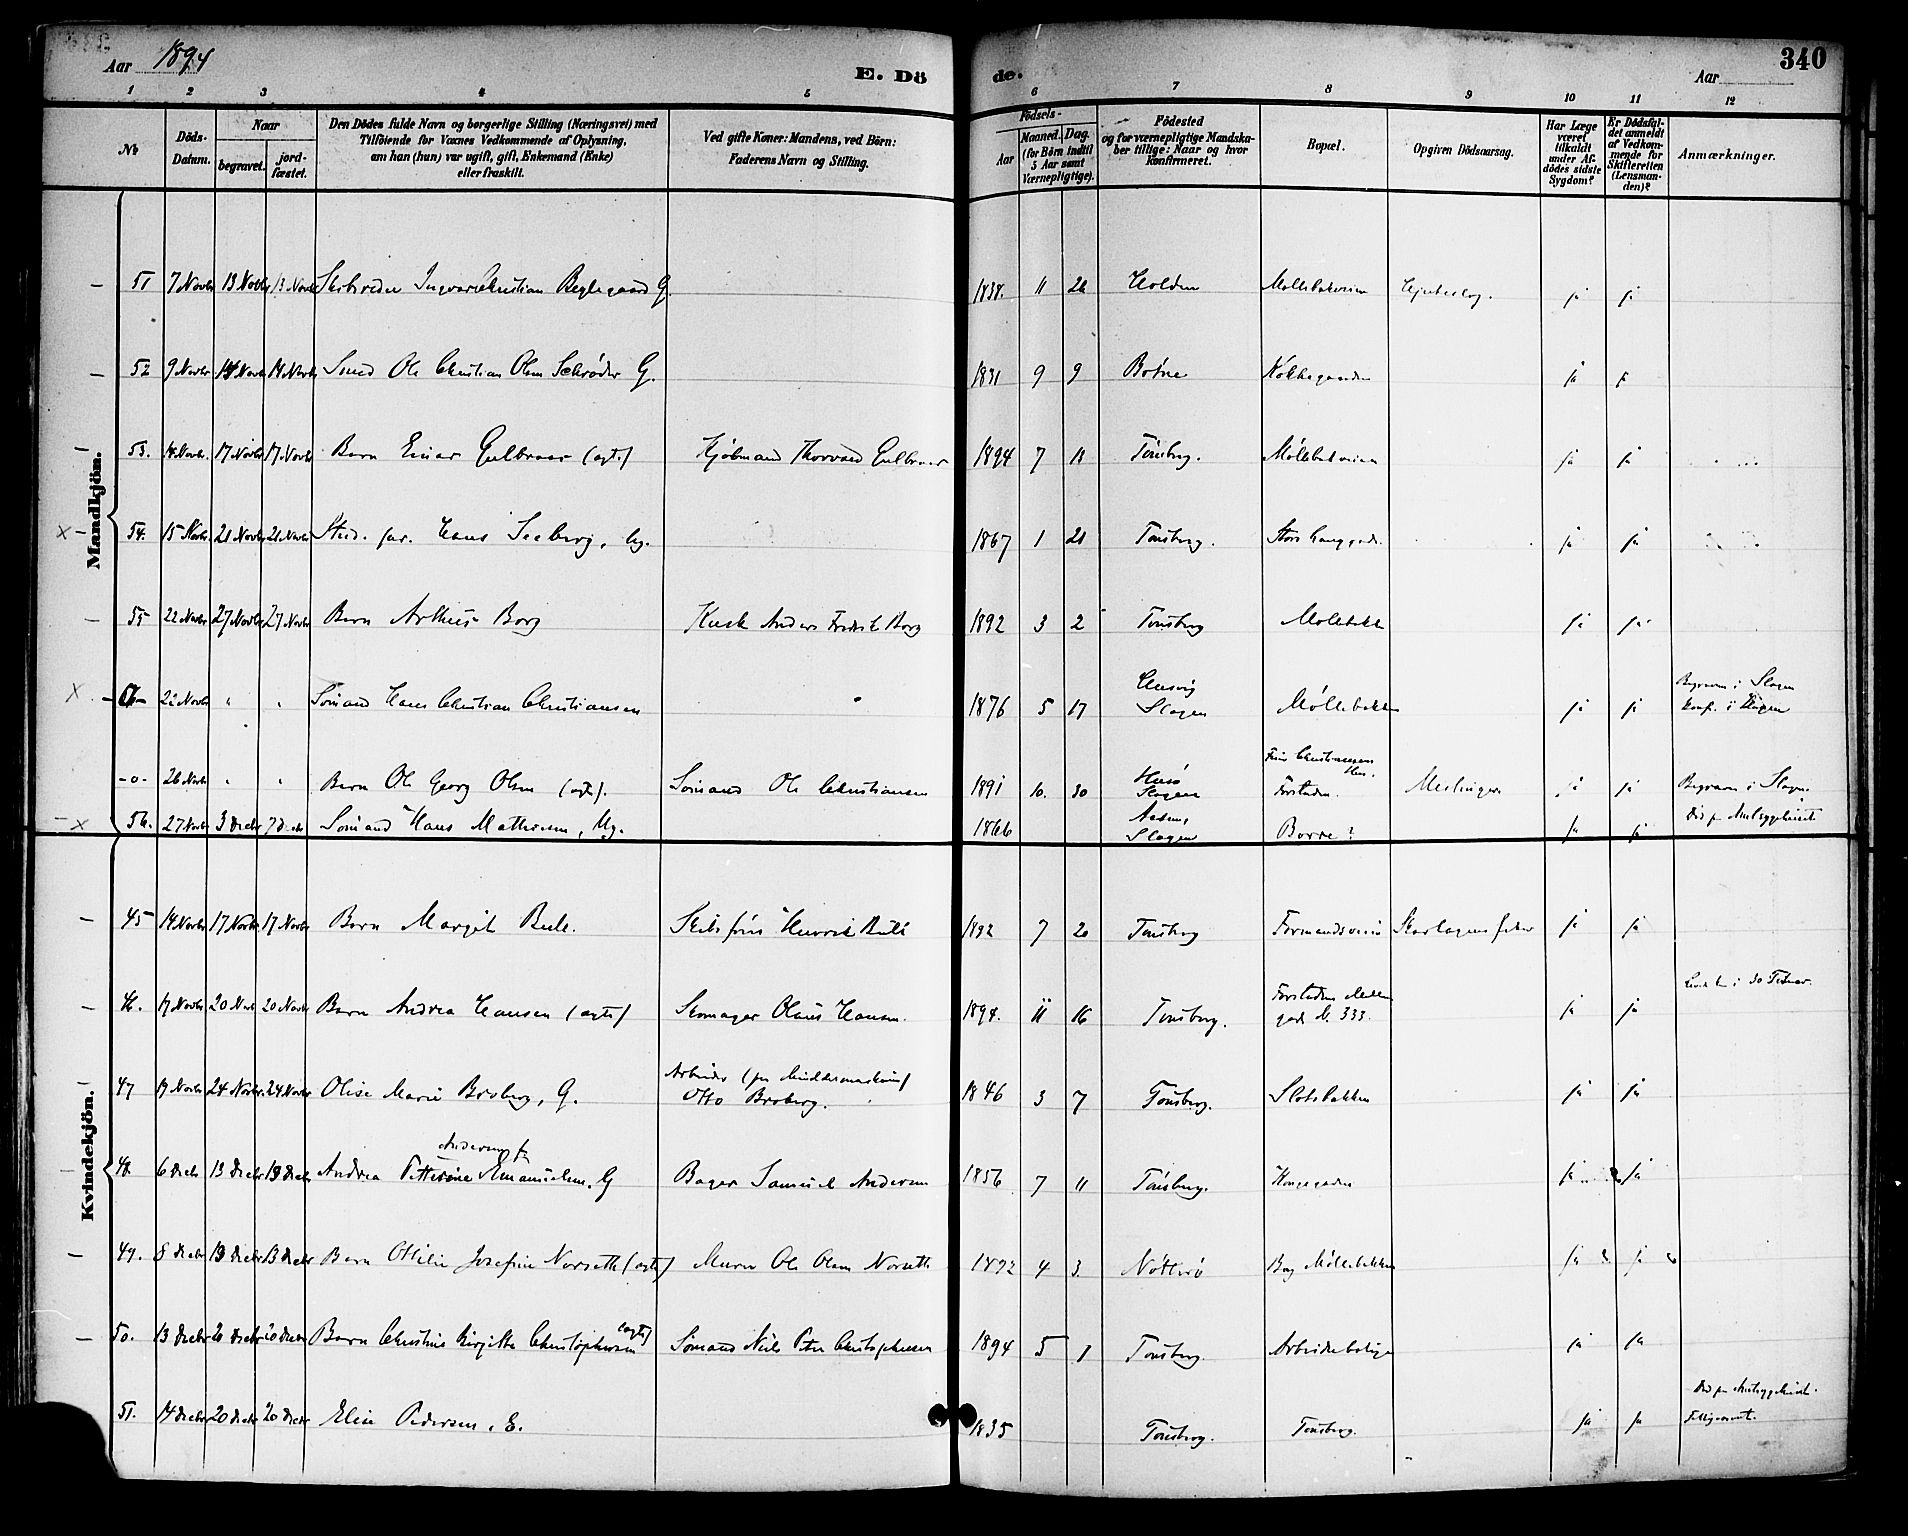 Aar 1894
E. Döde.
Aar
340
1 2 3 4 5 6 7 8 9 10 11 12
No
Döds-Datum.
Naar
begravet. jord-fæstet.
Den Dödes fulde Navn og borgerlige Stilling (Næringsvei) med
Tilföiende for Voxnes Vedkommende af Oplysning,
om han (hun) var ugift, gift, Enkemand (Enke)
eller fraskilt.
Ved gifte Koner: Mandens, ved Börn:
Faderens Navn og Stilling.
Födsels-
Aar
Maaned. Dag.
(for Börn indtil 5 Aar samt Værnepligtige).
Födested
og for værnepligtige Mandskaber tillige: Naar og hvor Konfirmeret.
Bopæl.
Opgiven Dödsaarsag.
Har Læge været tilkaldt under Afdödes sidste Sygdom?
Er Dödsfaldet anmeldt af Vedkommende for Skifteretten (Lensmanden)?
Anmærkninger.
Mandkjön.
51 7 Novbr 13 Novbr 13 Novbr Skibsreder Ingvar Christian Bryhgaard G. 1838. 11 Holden Møllebakveien ja ja
52 9 Novbr 14 Novbr 14 Novbr Smed Ole Christian Olsen Schrøder G. 1831 9 9 Botne Kokkegaarden ja ja
53. 14 Novbr. 17 Novbr 17 Novbr Barn Einar Gulbraar (ægte) Kjøbmand Thorvald Gulbraar 1894 7 11 Tønsberg. Møllebakveien ja ja
54. 15 Novbr 21 Novbr 21 Novbr Stud. jur. Hans Seeberg, Ug. 1867 1 21 Tønsberg. Store Langgade. ja ja
55 22 Novbr 27 Novbr 27 Novbr Barn Arthur Borg Kusk Anders Fredrik Borg 1892 3 2 Tønsberg Møllebakken ja ja
22 Novbr " " Sømand Hans Christian Christiansen 1876 5 17 Slagen Møllebakken ja ja Begraven i Slagen
Konf. i Slagen
-o- 26 Novbr " " Barn Ole Georg Olsen (ægte). Sømand Ole Christiansen 1891 10. 30 Husø
Slagen Christiansens Hus.
Forstaden. Meslinger ja ja Begraven i Slagen.
56. 27 Novbr 3 Decbr 7 Decbr Sømand Hans Mathisen, Ug. 1866 Aasen,
Slagen Borre? ja ja Død paa Amtssygehuset
Kvindekjön.
45 14 Novbr 17 Novbr 17 Novbr Barn Margit Bull. Skibsfører Henrik Bull 1892 7 20 Tønsberg Formandsveien Skarlagensfeber ja ja
46. 17 Novbr 20 Novbr 20 Novbr Barn Andrea Hansen (ægte) Skomager Olaus Hansen. 1894. 11 16 Tønsberg. Forstaden Møllegade N. 333. ja ja Levet kun i 30 Timer.
47 19 Novbr 24 Novbr 24 Novbr Olise Marie Broberg, G. Arbeider (paa Muddermaskine)
Otto Broberg. 1846 3 7 Tønsberg. Slotsbakken ja ja
48. 6 Decbr 13 Decbr 13 Decbr Andrea Petterine Emanuelsen. G Bager Samuel Andersen 1856 7 11 Tønsberg. Kongegaden ja ja
49. 8 Decbr 13 Decbr 13 Decbr Barn Ottilie Josefine Norseth (ægte) Murer Ole Olsen Norseth 1892 4 3. Nøtterø Bag Møllebakken ja ja
50. 13 Decbr 20 Decbr 20 Decbr Barn Christine Birgitte Christophersen (ægte) Sømand Niels Peter Christophersen 1894 5 1 Tønsberg. Arbeiderbolige ja ja
51. 14 Decbr 20 Decbr 20 Decbr Elise Pedersen, E. 1835 Tønsberg. Tønsberg. ja ja Død paa Amtssygehuset.
Fattigvæsenet.